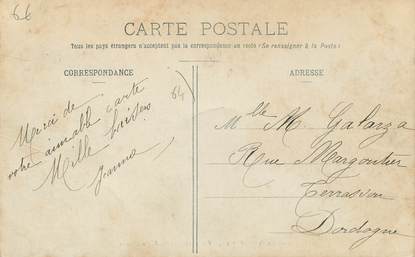 66
CARTE POSTALE
Tous les pays étrangers n'acceptent pas la correspondance au recto (Se renseigner à la Poste)
CORRESPONDANCE
64
Merci de
votre aimable carte
Mille baisers
Jeanne
ADRESSE
Mlle M. Galarza
Rue Margontier
Terrasson
Dordogne